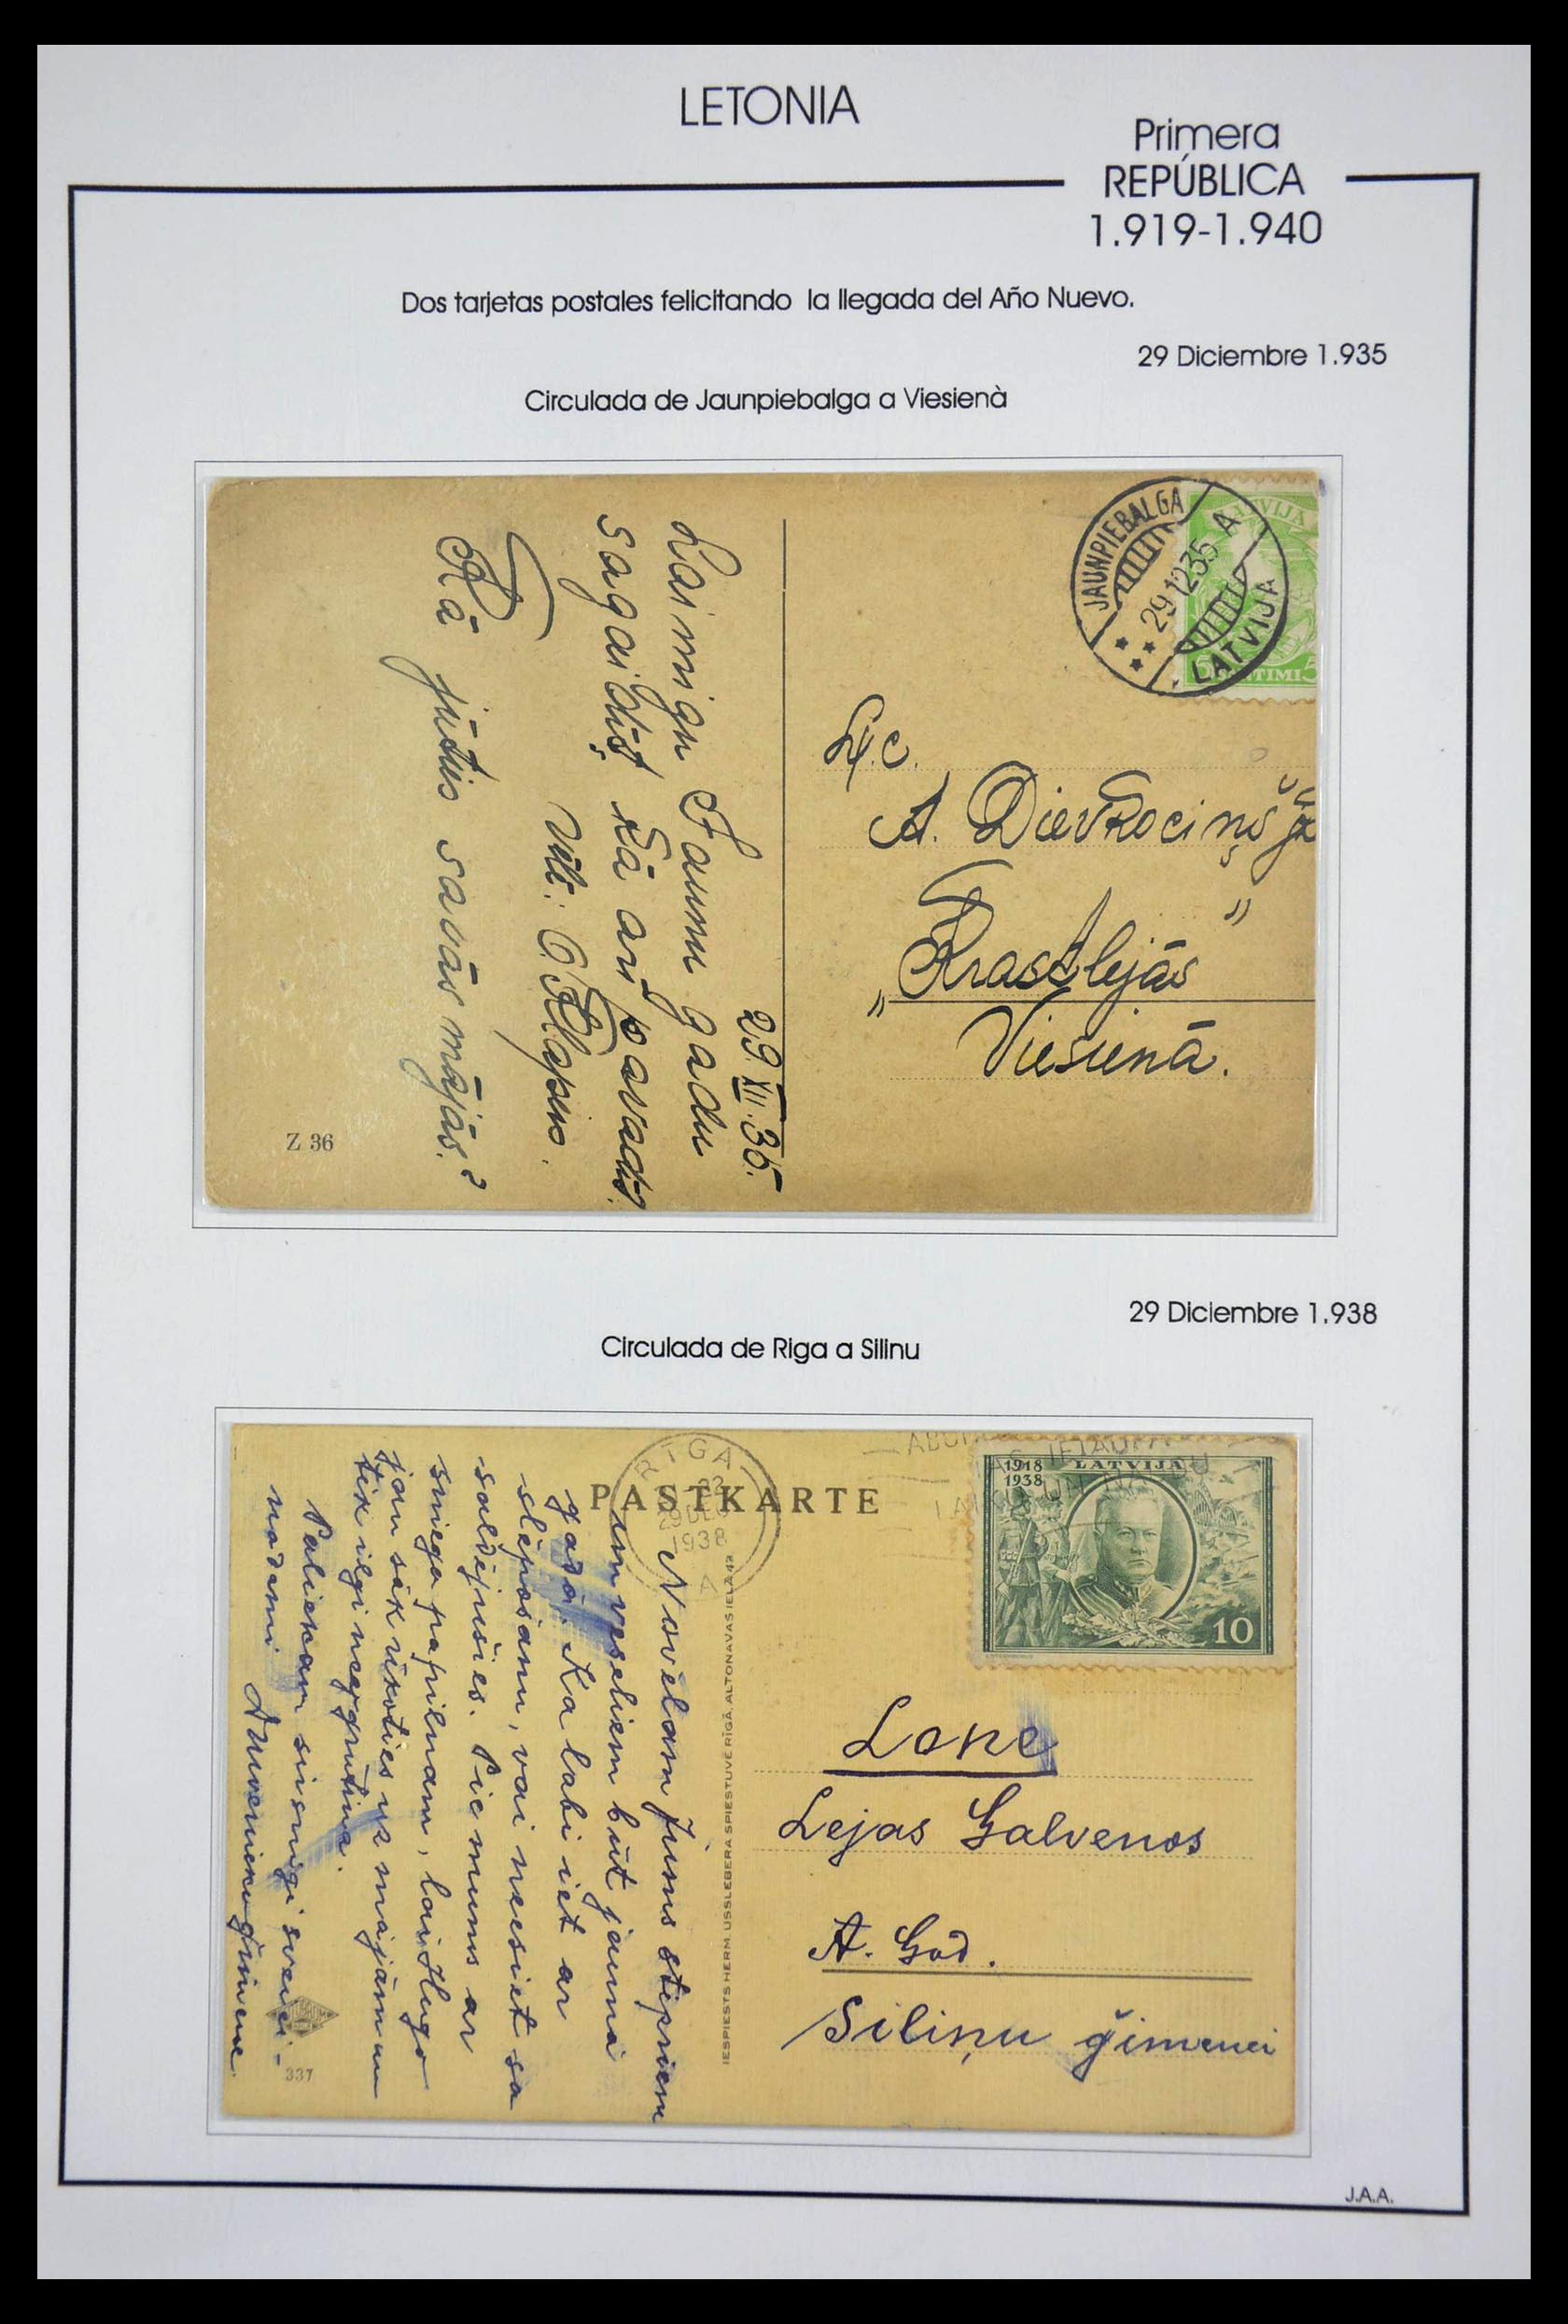 LETONIA
Primera
REPÚBLICA
1.919-1.940
Dos tarjetas postales felicitando la llegada del Año Nuevo.
29 Diciembre 1.935
Circulada de Jaunpiebalga a Viesienà
JAUNPIEBALGA
29 12 35 A
LATVIJA
LATVIJA
5
L. c.
A. Dievkociņš
„Krastlejās"
Viesienā.
29.XII.35.
Laimigu Jaunu gadu
sagaidişt kā arī pavadīt.
Kā jūtus savās mājās?
Z 36
29 Diciembre 1.938
Circulada de Riga a Silinu
PASTKARTE
RIGA
29 DEC
1938
A
1918
1938
LATVIJA
10
IESPIESTS HERM. USSLEBERA SPIESTUVĒ RĪGĀ, ALTONAVAS IELĀ
Lonē
Lejas Galvenos
A. God.
Siliņu ģimenei
Novēlam Jums stipriem
un veseliem būt jaunā
gadā. Kā labi iet ar
slēpošanu, vai neesiet sa
saldējušies. Pie mums ar
sniega papilnam, lai Hugo
jau sāk rīkoties uz mājām un
tik ilgi
Paliekam sirsnīgi sveici-
nādami
ģimene
337
J.A.A.